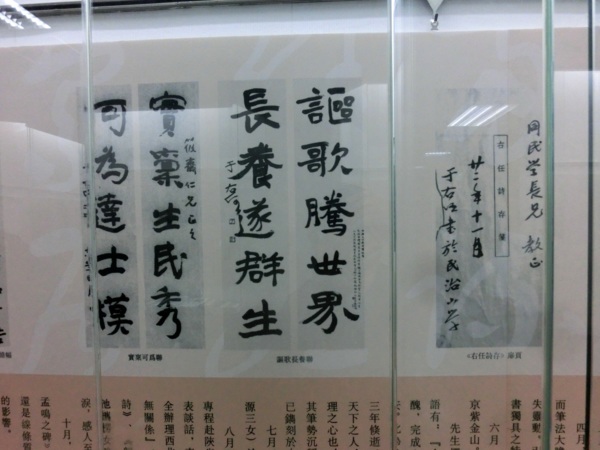 同民學長兄 教正
右任詩存箋
廿二年十一月
于右任書於民治小學
《右任詩存》扉頁
謳歌騰世界
長養遂群生
于右任
謳歌長養聯
實稟生民秀
仁兄正之
可為達士模
實稟可為聯
四月
而筆法大
失靈動
書獨具之
六月
京紫金山
先生
語有：『
醜，完成
天下之人
理之心也
其筆勢沉
已鐫刻於
七月
源三女）
八月
專程赴陝
表談話，
全辦理西北
無關係』
詩》、
淚，感人至
十月，
孟鳴之碑
的影響。